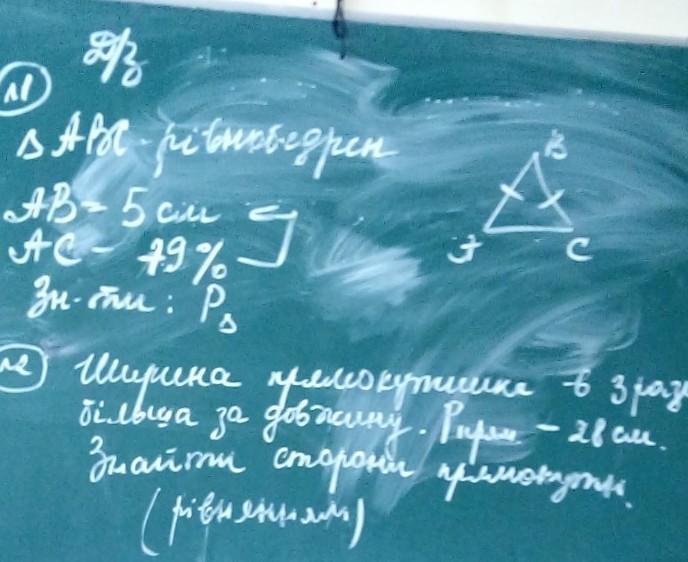 Д/з
№1
В
△ АВС - рівнобедрен
АВ = 5 см
АС - 79%
А С
Зн-ти : P△
№2 Ширина прямокутника в 3 рази
більша за довжину. Pпрям - 28 см.
Знайти сторони прямокутн.
(рівнянням)